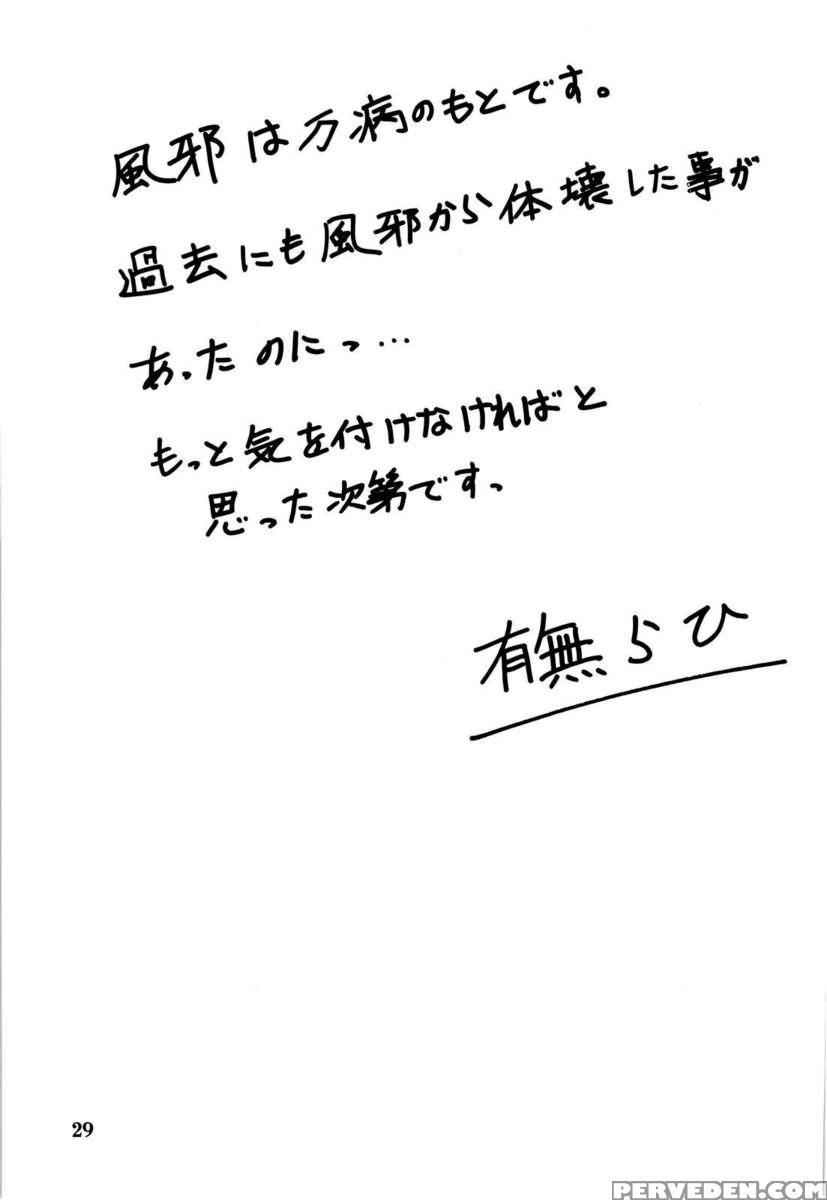 風邪は万病のもとです。
過去にも風邪から体壊した事が
あったのにっ…
もっと気を付けなければと
思った次第ですっ
有無らひ
29
PERVEDEN.COM